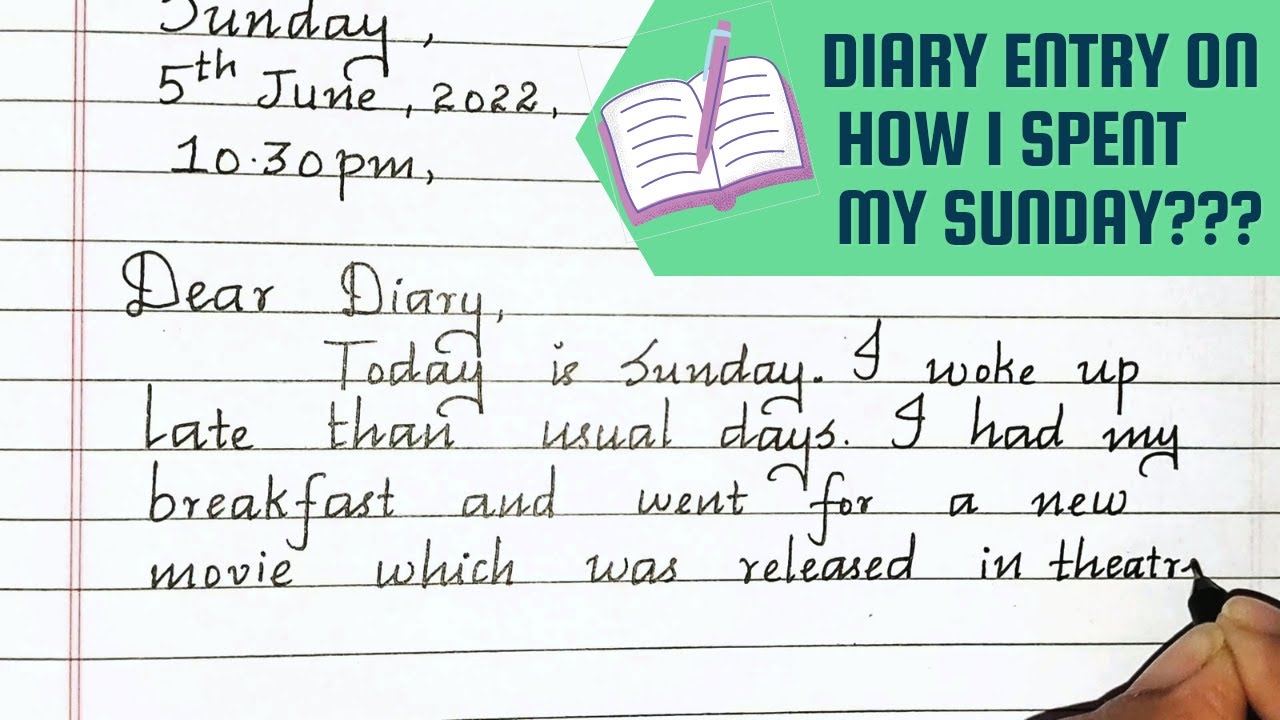 Sunday,
5th June, 2022,
10.30pm,
DIARY ENTRY ON
HOW I SPENT
MY SUNDAY???
Dear Diary,
Today is Sunday. I woke up
late than usual days. I had my
breakfast and went for a new
movie which was released in theatr